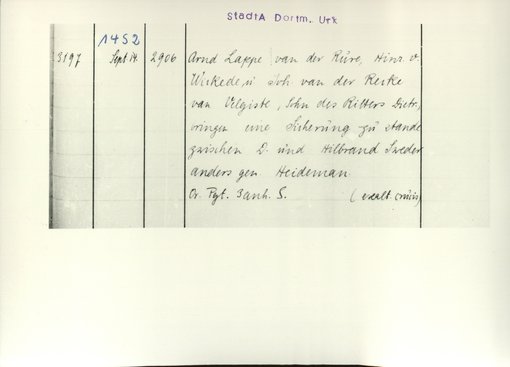 StadtA Dortm. Urk
1452
3197 Sept. 14. 2906 Arnd Lappe van der Rure, Hinr. v.
Wickede u Joh van der Recke
van Velgiste, Sohn des Ritters Dietr,
bringen eine Sicherung zu stande
zwischen D. und Hilbrand Sweder
anders gen Heideman
Or. Pgt. 3 anh. S. (exalt. crucis)